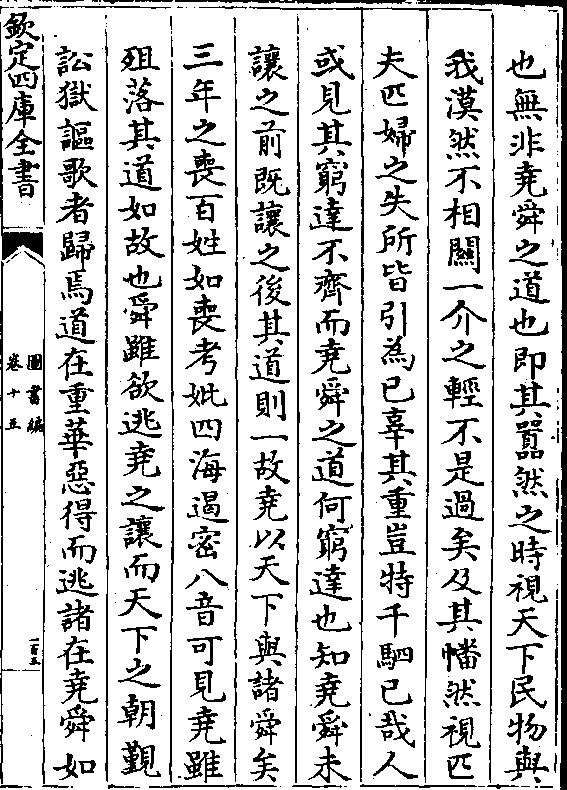 也無非堯舜之道也即其囂然之時視天下民物與
我漠然不相關一介之輕不是過矣及其幡然視匹
夫匹婦之失所皆引為已辜其重豈特千駟已哉人
或見其窮達不齊而堯舜之道何窮達也知堯舜未
讓之前既讓之後其道則一故堯以天下與諸舜矣
三年之喪百姓如喪考妣四海遏密八音可見堯雖
殂落其道如故也舜雖欲逃堯之讓而天下之朝覲
訟獄謳歌者歸焉道在重華惡得而逃諸在堯舜如
欽定四庫全書
圖書編
卷十五
一百五